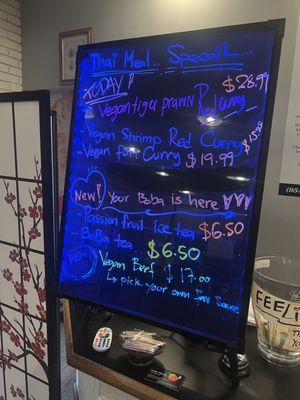 Thai Meal.. Special...
TODAY!!
$28.99
- Vegan tiger prawn
- Vegan Shrimp Red Curry
- Vegan Curry $19.99
New! Your Boba is here
- Passion fruit ice tea $6.50
- BoBa tea $6.50
New Vegan Beef $17.00
↳ pick your own Sauce
FEELI